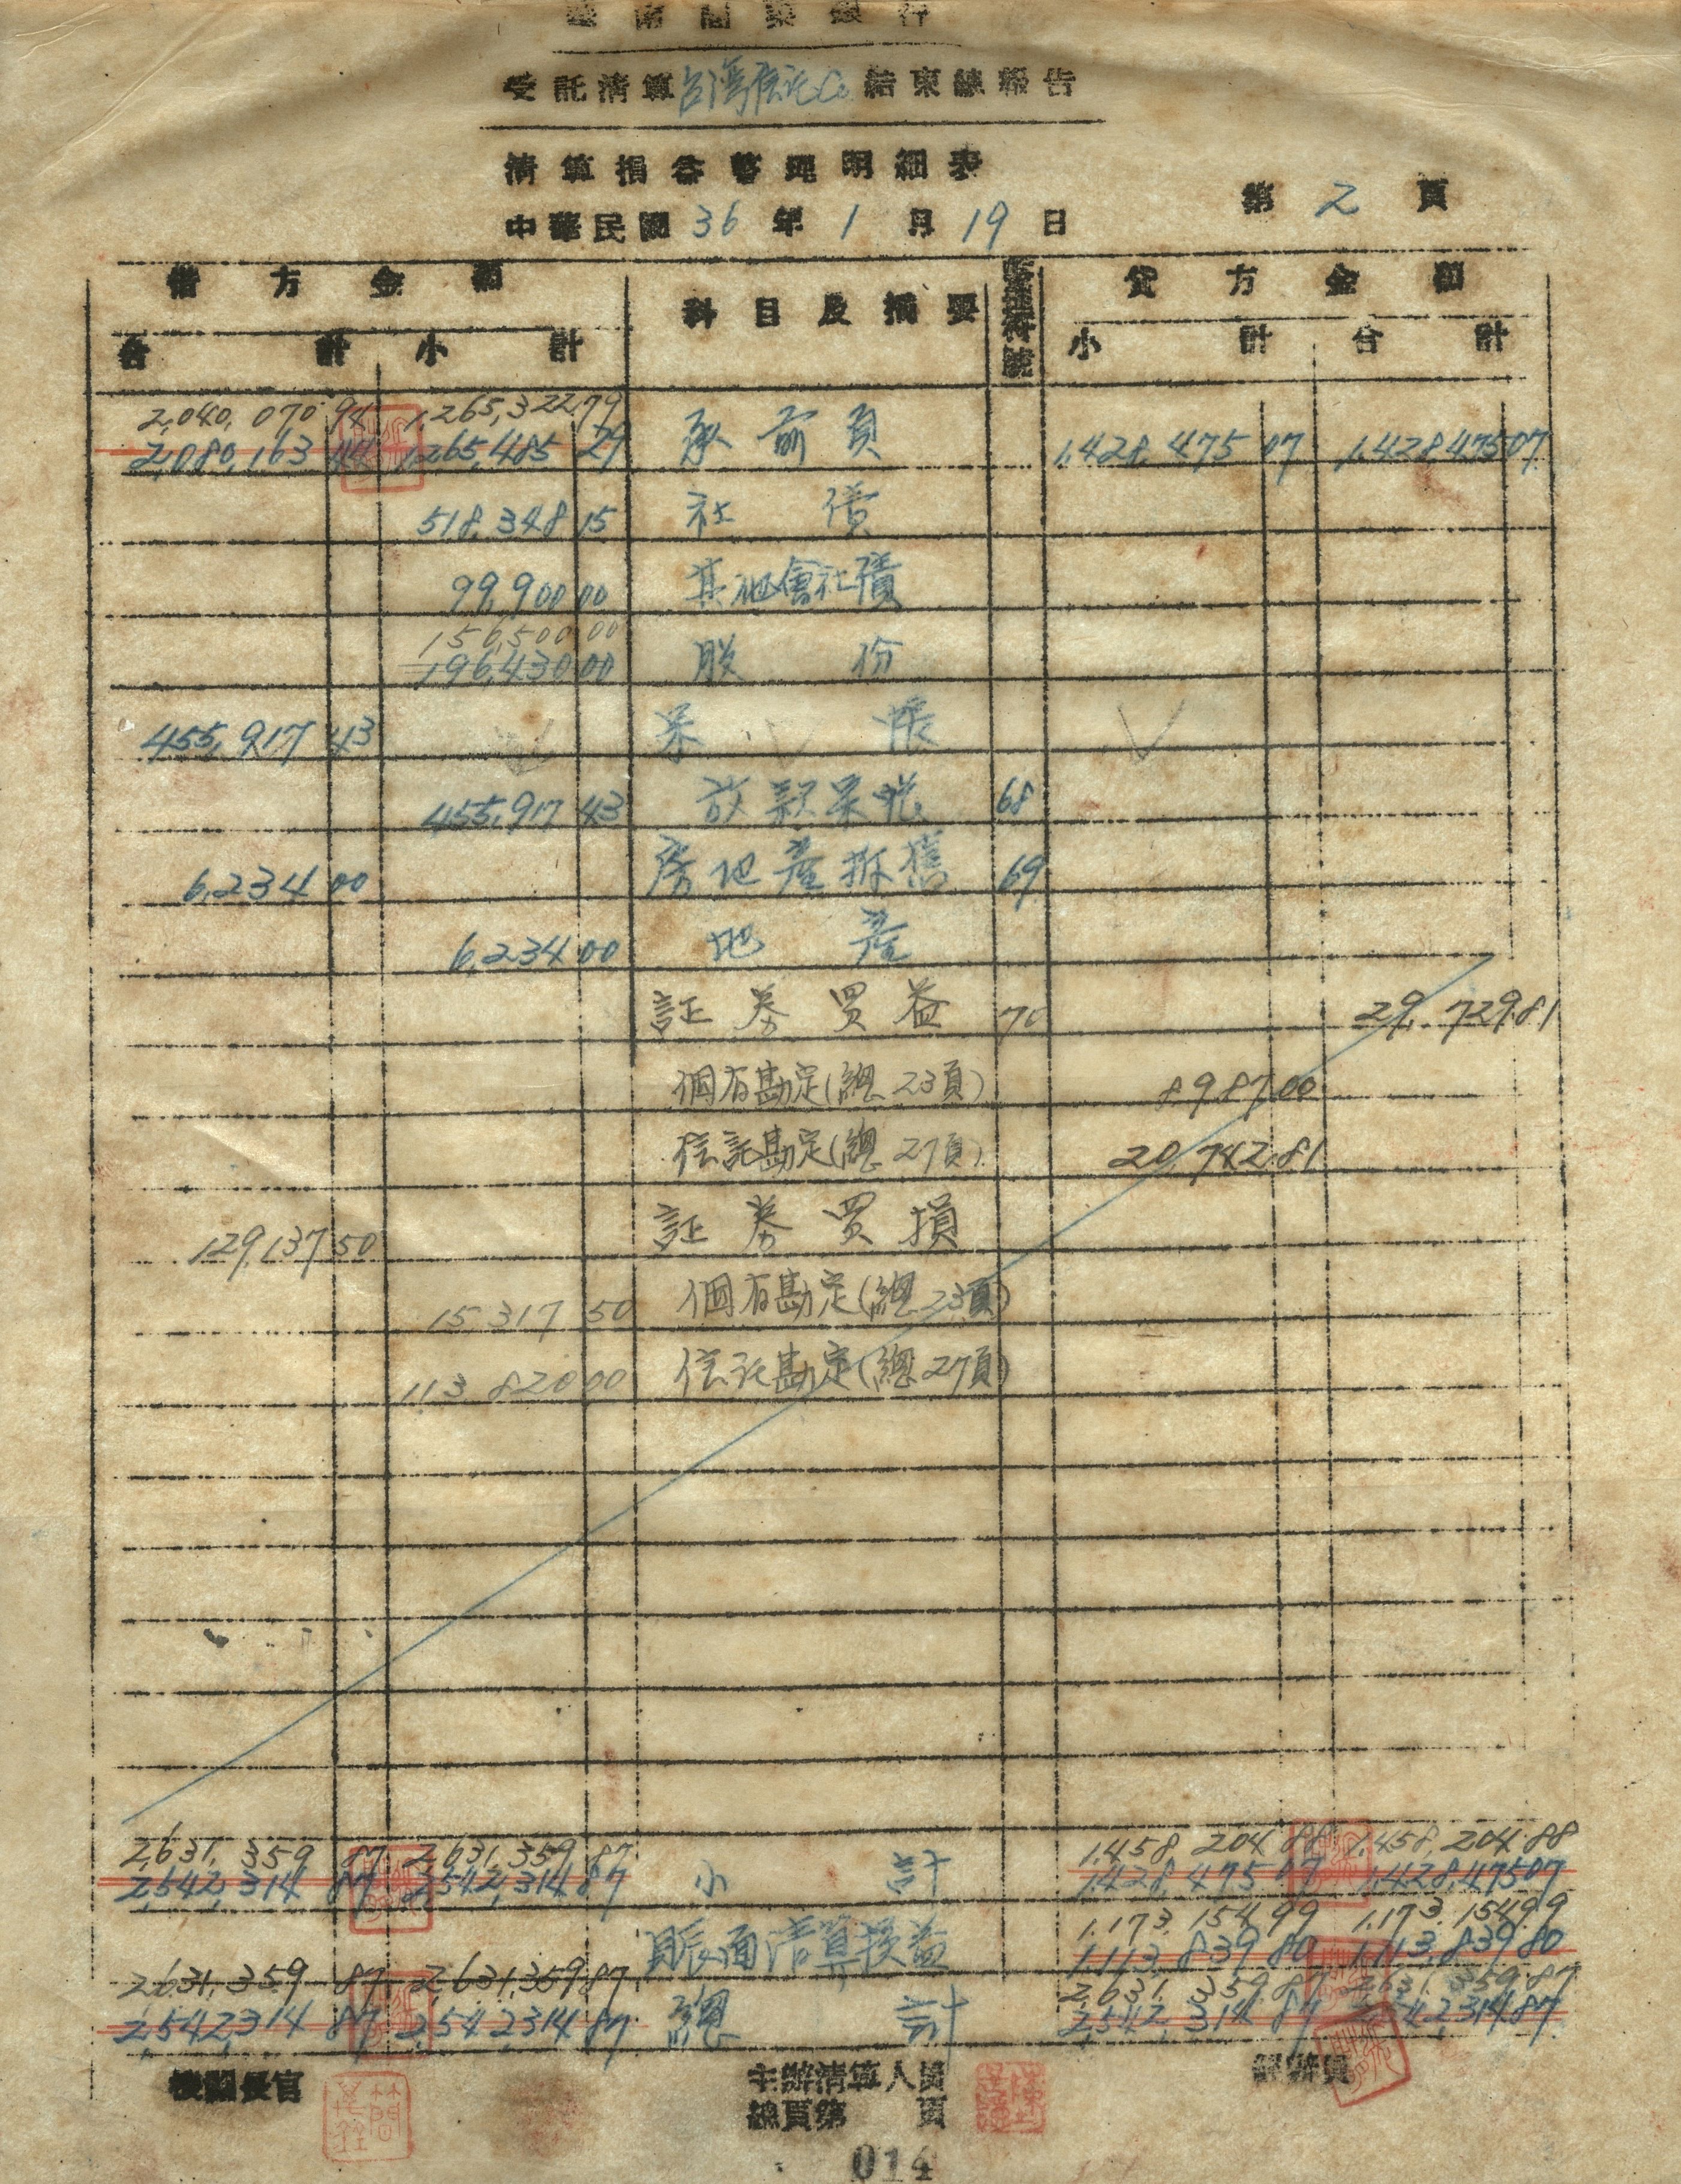 臺灣工業銀行
受託清算台灣信託Co.結束總報告
清算損益整理明細表
中華民國36年1月19日 第2頁
借方金額 科目及摘要 貸方金額
合計 小計 小計 合計
2,040,070 94 1,265,322 79
2,080,163 44 1,265,485 29 承前頁 1,428,475 07 1,428,475 07
518,348 15 社債
99,900 00 其他會社債
156,500 00
196,430 00 股份
455,917 43 呆賬
455,917 43 放款呆賬 68
6,234 00 房地產拆舊 69
6,234 00 地產
証券買益 70 29,729.81
個有勘定(總23頁) 8,987.00
信託勘定(總27頁) 20,742.81
129,137 50 証券買損
15,317 50 個有勘定(總23頁)
113,820 00 信託勘定(總27頁)
2,631,359 87 2,631,359 87 1,458,204 88 1,458,204 88
2,542,314 87 2,542,314 87 小計 1,428,475 07 1,428,475 07
1,173,154 99 1,173,154 99
賬面清算損益 1,113,839 80 1,113,839 80
2,631,359 87 2,631,359 87 2,631,359 87 2,631,359 87
2,542,314 87 2,542,314 87 總計 2,542,314 87 2,542,314 87
機關長官 主辦清算人員 經辦員
總頁第 頁
014